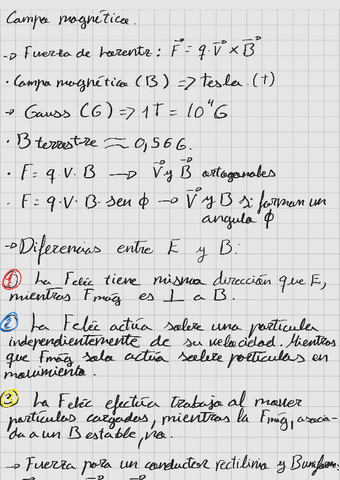 Campo magnético.
→ Fuerza de Lorentz: F⃗ = q · V⃗ × B⃗
· Campo magnético (B) => Tesla (T)
→ Gauss (G) => 1T = 10⁴G
· B terrestre ≈ 0,5G G.
· F = q · V · B → V⃗ y B⃗ ortogonales
· F = q · V · B · sen ϕ → V⃗ y B si forman un
angulo ϕ
→ Diferencias entre E y B:
1 La Feléc tiene misma dirección que E,
mientras Fmág es ⊥ a B.
2 La Feléc actúa sobre una partícula
independientemente de su velocidad. Mientras
que Fmág solo actúa sobre partículas en
movimiento.
3 La Feléc efectúa trabajo al mover
partículas cargadas, mientras la Fmág, asocia-
da a un B estable, no.
→ Fuerza para un conductor rectilinio y B uniforme: